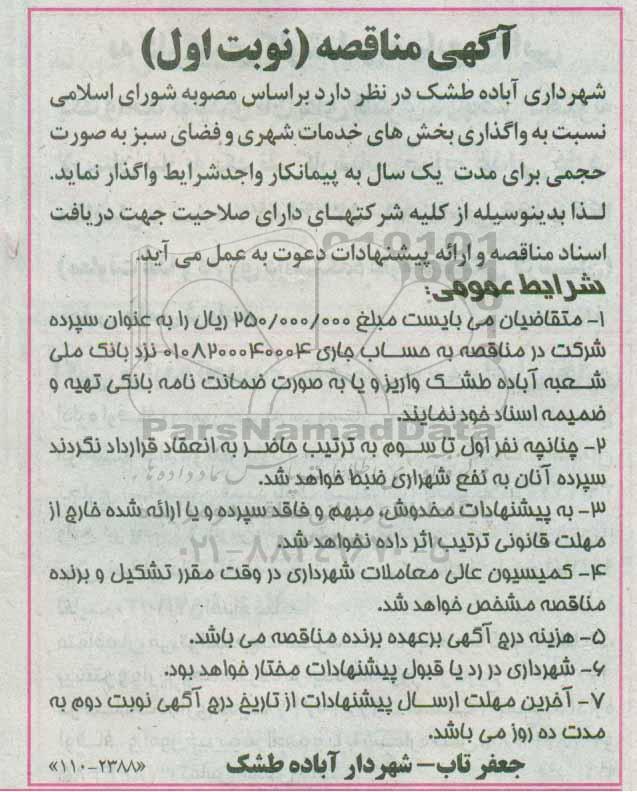 آگهی مناقصه (نوبت اول)
شهرداری آباده طشک در نظر دارد براساس مصوبه شورای اسلامی
نسبت به واگذاری بخش های خدمات شهری و فضای سبز به صورت
حجمی برای مدت یک سال به پیمانکار واجدشرایط واگذار نماید.
لذا بدینوسیله از کلیه شرکتهای دارای صلاحیت جهت دریافت
اسناد مناقصه و ارائه پیشنهادات دعوت به عمل می آید.
شرایط عمومی:
۱- متقاضیان می بایست مبلغ ۲۵۰/۰۰۰/۰۰۰ ریال را به عنوان سپرده
شرکت در مناقصه به حساب جاری ۰۱۰۸۲۰۰۰۴۰۰۰۴ نزد بانک ملی
شعبه آباده طشک واریز و یا به صورت ضمانت نامه بانکی تهیه و
ضمیمه اسناد خود نمایند.
ParsNamadData
۲- چنانچه نفر اول تا سوم به ترتیب حاضر به انعقاد قرارداد نگردند
سپرده آنان به نفع شهراری ضبط خواهد شد.
۳- به پیشنهادات مخدوش، مبهم و فاقد سپرده و یا ارائه شده خارج از
مهلت قانونی ترتیب اثر داده نخواهد شد.
۴- کمیسیون عالی معاملات شهرداری در وقت مقرر تشکیل و برنده
مناقصه مشخص خواهد شد.
۵- هزینه درج آگهی برعهده برنده مناقصه می باشد.
۶- شهرداری در رد یا قبول پیشنهادات مختار خواهد بود.
۷- آخرین مهلت ارسال پیشنهادات از تاریخ درج آگهی نوبت دوم به
مدت ده روز می باشد.
جعفر تاب- شهردار آباده طشک
«۱۱۰-۲۳۸۸»